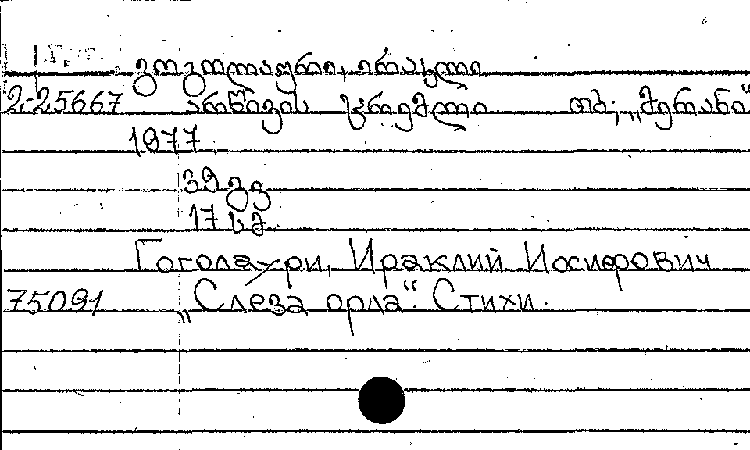 გოგოლაური, ირაკლი
2-25667 არწივის ცრემლი თბ; „მერანი“
1977
39 გვ
17 სმ.
Гоголаури, Ираклий Иосифович
75091 „Слеза орла“. Стихи.